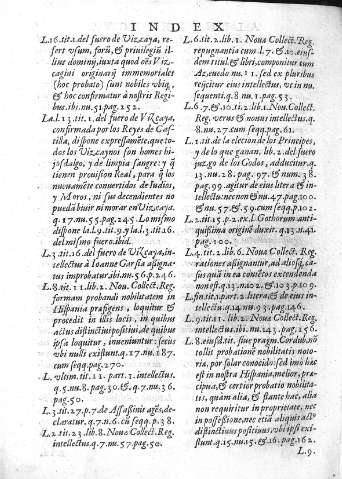 INDEX
L.16.tit.1.del fuero de Vizcaya, re-
fert usum, forū, & privilegiū il-
lius domini, iuxta quod oēs Viz-
cagini originarij immemoriales
(hoc probato) sunt nobiles ubiq,
& hoc confirmatur à nostris Regi-
bus.ibi.nu.51.pag.252.
La l.13.tit.1.del fuero de Vizcaya,
confirmada por los Reyes de Cas-
tilla, dispone expressamēte, que to-
dos los Vizcaynos son homes hi-
josdalgo, y de limpia sangre: y q̄
tienen provision Real, para q̄ los
nuevamēte convertidos de Iudios,
y Moros, ni sus decendientes no
puedā biuir ni morar en Vizcaya.
q.17.nu.55.pag.245. Lo mismo
dispone la l.9.tit.9.y la l.3.tit.26.
del mismo fuero.ibid.
L.3.tit.16.del fuero de Vizcaya, in-
tellectus à Ioanne Garsia assigna-
tus improbatur.ibi.nu.56.p.246.
L.8.tit.11.lib.2. Nou. Collect. Reg.
formam probandi nobilitatem in
Hispania præfigens, loquitur &
procedit in illis locis, in quibus
actus distinctiui positiui, de quibus
ipsa loquitur, inueniuntur: secus
vbi nulli existunt.q.17.nu.187.
cum seqq.pag.270.
L. vltim. tit.11. part.3. intellectus.
q.5.nu.8.pag.30.& q.7.nu.36.
pag.50.
L.3.tit.27.p.7.de Assasinis agēs, de-
claratur.q.7.n.6.cū seqq.p.38.
L.2.tit.23.lib.8. Noua Collect. Reg.
intellectus.q.7.nu.57.pag.50.
L.6.tit.2.lib.1. Noua Collect. Reg.
repugnantia cum l.7.& 10.eiusf-
dem tituli & libri, componitur cum
Azeuedo nu.11. sed ex pluribus
reijcitur eius intellectus, vt in nu.
sequenti.q.8.nu.1.pag.53.
L.6.7.& 10.tit.2.lib.1. Nou. Collect.
Reg. verus & nouus intellectus.q.
8.nu.27.cum seqq.pag.61.
L.1.tit.de la eleccion de los Principes,
y de lo que ganan, lib.2. del fuero
juzgo de los Godos, adducitur.q.
13.nu.28.pag.97.& num.38.
pag.99. agitur de eius litera & in-
tellectu: necnon & nu.47.pag.100.
& nu.57.& 59.cum seqq.p.102.
L.2.tit.5.p.2.ex l. Gothorum anti-
quissima origine duxit.q.13.n.41.
pag.100.
L.4.tit.2.lib.6. Noua Collect. Reg.
rationes assignantur, ad alios q̄, ca-
sus quā in ea contētos extendenda
non est.q.13.n.102.& 103.p.109.
L.fin.tit.1.part.2. litera, & de eius in-
tellectu.q.14.nu.93.pag.146.
L.9.tit.11.lib.2. Noua Collect. Reg.
intellectus.ibi.nu.143.pag.156.
L.8.eiusd.tit. siue pragm. Cordub. nō
tollit probationē nobilitatis noto-
riæ, por solar conocido: sed imò hæc
est in nostra Hispania, melior, præ-
cipua, & certior probatio nobilita-
tis, quàm alia, & stante hac, alia
non requiritur in proprietate, nec
in possessione, nec etiā aliquis actꝰ
distinctiuus positiuus, vbi ipsi exi-
stunt.q.15.nu.15.& 16.pag.162.
L.9.